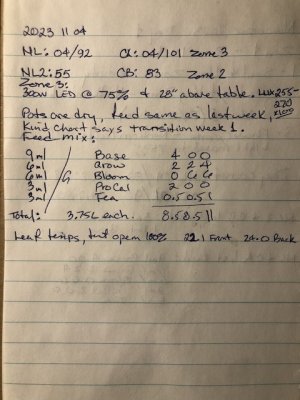 2023 11 04
NL: 04/92 CK: 04/101 Zone 3
NL2: 55 CB: 83 Zone 2
Zone 3:
300W LED @ 75% & 28" above table. Lux 255-
270
x100
Pots are dry, feed same as last week,
Kind Chart says transition week 1.
Feed mix:
9 ml Base 4 0 0
6 ml Grow 2 2 4
6 ml Bloom 0 6 6
3 ml ProCal 2 0 0
3 ml Tea 0.5 0.5 1
/G
Total: 3.75L each. 8.5 8.5 11
Leaf temps, tent open 100% 22.1 Front 24.0 Back